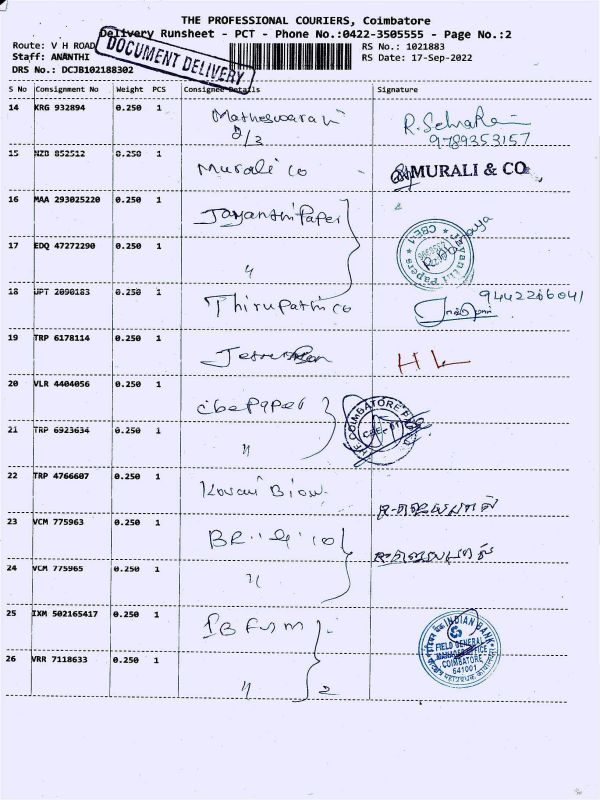 THE PROFESSIONAL COURIERS, Coimbatore
Delivery Runsheet - PCT - Phone No.:0422-3505555 - Page No.:2
Route: V H ROAD
RS No.: 1021883
Staff: ANANTHI
RS Date: 17-Sep-2022
DRS No.: DCJB102188302
DOCUMENT DELIVERY
S No Consignment No Weight PCS Consignee Details Signature
14 KRG 932894 0.250 1 Matheswaran
9789353157
15 NZB 852512 0.250 1 Murali co MURALI & CO
16 MAA 293025220 0.250 1 Jayanthi Paper
17 EDQ 47272290 0.250 1 "
Jayanthi Papers CBE-1
18 JPT 2090183 0.250 1 Thirupathi co 9442206041
19 TRP 6178114 0.250 1
20 VLR 4404056 0.250 1 cbe Paper
COIMBATORE
21 TRP 6923634 0.250 1 "
22 TRP 4766607 0.250 1 Kovai
23 VCM 775963 0.250 1
24 VCM 775965 0.250 1 "
25 IXM 502165417 0.250 1 IB FGM
INDIAN BANK
FIELD GENERAL
MANAGER OFFICE
COIMBATORE
641001
26 VRR 7118633 0.250 1 "
2